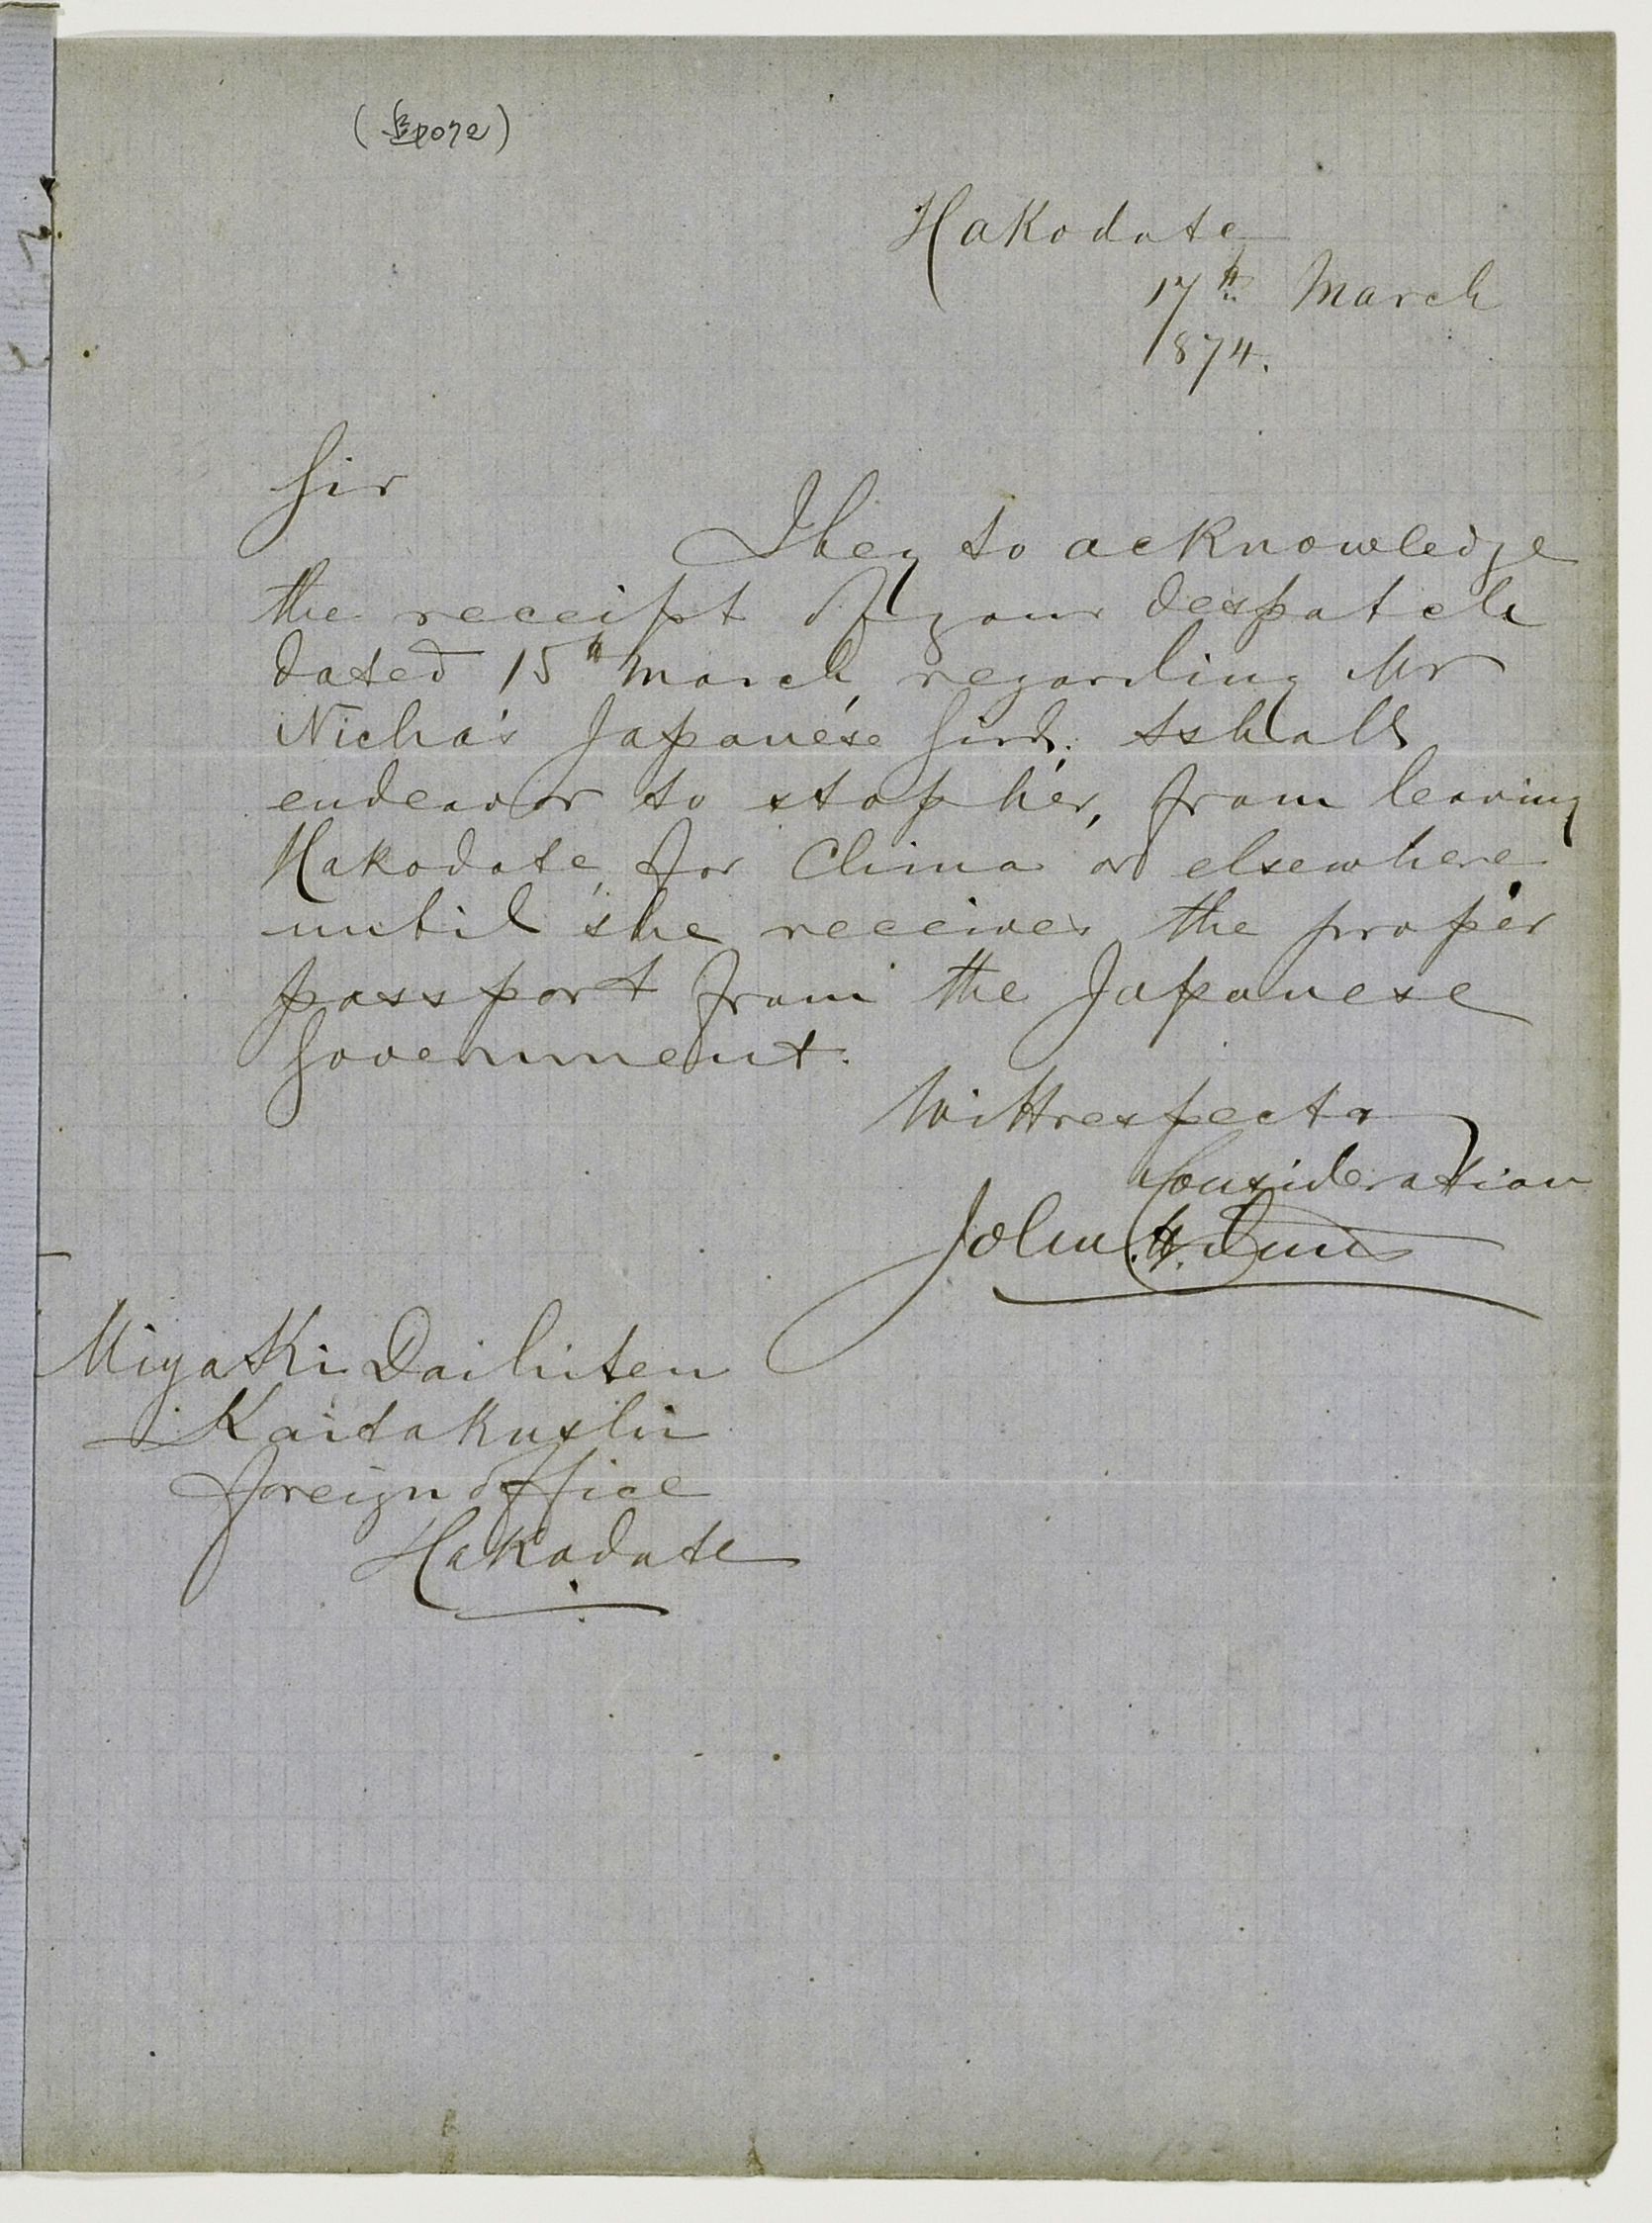 Hakodate
17th March
1874.
Sir
I beg to acknowledge
the receipt of your despatch
dated 15th March, regarding Mr
Nicha's Japanese Girl. I shall
endeavor to stop her, from leaving
Hakodate, for China or elsewhere
until she receives the proper
passport from the Japanese
Government.
With respect &
Consideration
John. H. Duus
Miyaki Daihiten
Kaitakushi
Foreign Office
Hakodate